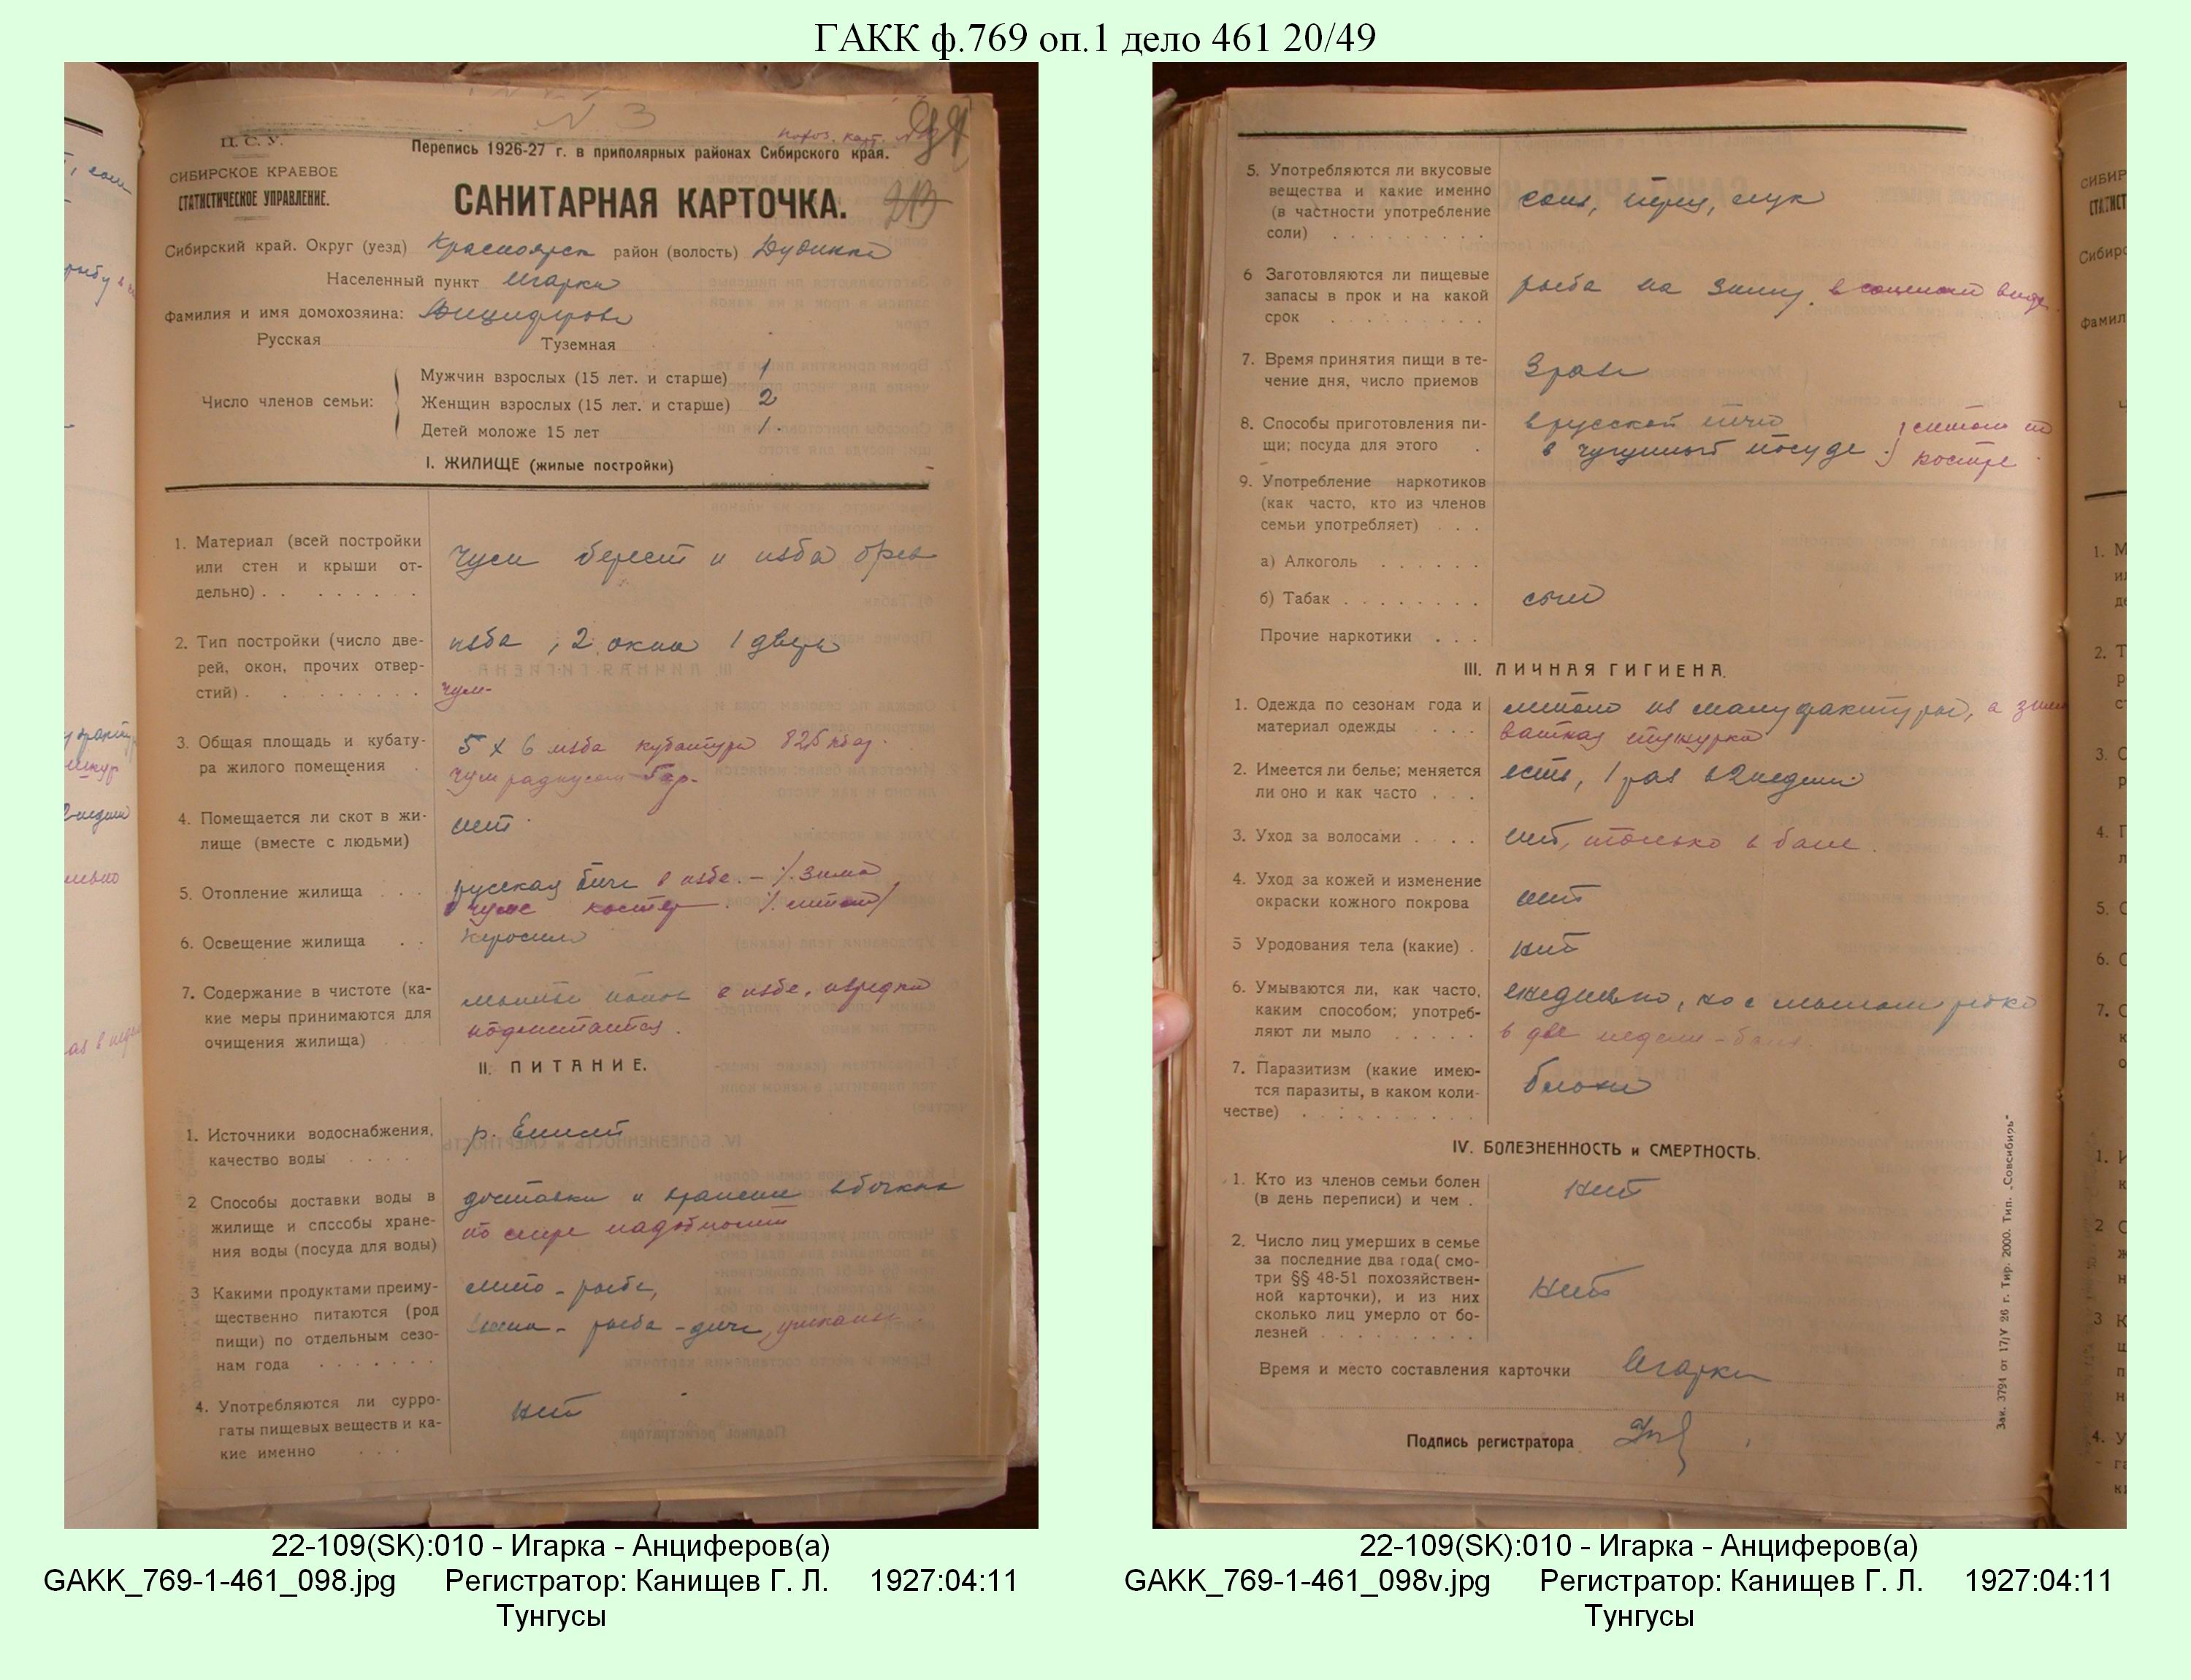 ГАКК ф.769 оп.1 дело 461 20/49
N 3
похоз. карт.
Ц. С. У.
СИБИРСКОЕ КРАЕВОЕ
СТАТИСТИЧЕСКОЕ УПРАВЛЕНИЕ.
Перепись 1926-27 г. в приполярных районах Сибирского края.
САНИТАРНАЯ КАРТОЧКА.
213
Сибирский край. Округ (уезд) Красноярск район (волость) Дудинка
Населенный пункт Игарка
Фамилия и имя домохозяина: Анцифирова
Русская Туземная
Число членов семьи:
Мужчин взрослых (15 лет. и старше) 1
Женщин взрослых (15 лет. и старше) 2
Детей моложе 15 лет 1.
I. ЖИЛИЩЕ (жилые постройки)
1. Материал (всей постройки
или стен и крыши от-
дельно) . . . . . . . .
чум берест и изба брев
2. Тип постройки (число две-
рей, окон, прочих отвер-
стий) . . . . . . . . .
изба, 2 окна 1 дверь
чум-
3. Общая площадь и кубату-
ра жилого помещения .
5 х 6 изба кубатура 82,5
чум радиусом
4. Помещается ли скот в жи-
лище (вместе с людьми)
нет
5. Отопление жилища . . .
русская печь в избе. - /. зимо
в чуме костер /. летом /
6. Освещение жилища . .
керосин
7. Содержание в чистоте (ка-
кие меры принимаются для
очищения жилища) . . . .
мытье полов в избе, изредка
подметается.
II. ПИТАНИЕ.
1. Источники водоснабжения,
качество воды . . . .
р. Енисей
2 Способы доставки воды в
жилище и спссобы хране-
ния воды (посуда для воды)
доставки и хранение в бочках
по мере надобности
3 Какими продуктами преиму-
щественно питаются (род
пищи) по отдельным сезо-
нам года . . . . . . .
лето - рыба,
зима - рыба - дичь, ушканы.
4. Употребляются ли сурро-
гаты пищевых веществ и ка-
кие именно . . .
нет
22-109(SK):010 - Игарка - Анциферов(а)
GAKK_769-1-461_098.jpg Регистратор: Канищев Г. Л. 1927:04:11
Тунгусы
5. Употребляются ли вкусовые
вещества и какие именно
(в частности употребление
соли) . . . . . . . . .
соль, перец, лук
6 Заготовляются ли пищевые
запасы в прок и на какой
срок . . . . . . . . .
рыба на зиму. в соленом виде.
7. Время принятия пищи в те-
чение дня, число приемов
3 раза
8. Способы приготовления пи-
щи; посуда для этого .
в русской печи
в чугунной посуде летом на
костре
9. Употребление наркотиков
(как часто, кто из членов
семьи употребляет) . . .
а) Алкоголь . . . . . .
б) Табак . . . . . . . .
Прочие наркотики . . .
III. ЛИЧНАЯ ГИГИЕНА.
1. Одежда по сезонам года и
материал одежды . . .
летом из мануфактуры, а зим
ватная тужурка
2. Имеется ли белье; меняется
ли оно и как часто . . .
есть, 1 раз в 2 недели
3. Уход за волосами . . . .
нет, только в бане.
4. Уход за кожей и изменение
окраски кожного покрова
нет
5 Уродования тела (какие) .
нет
6. Умываются ли, как часто,
каким способом; употреб-
ляют ли мыло . . . . .
ежедневно, но с мылом редко
в две недели - баня.
7. Паразитизм (какие имею-
тся паразиты, в каком коли-
честве) . . . . . . . . .
блохи
IV. БОЛЕЗНЕННОСТЬ и СМЕРТНОСТЬ.
1. Кто из членов семьи болен
(в день переписи) и чем .
нет
2. Число лиц умерших в семье
за последние два года( смо-
три §§ 48-51 похозяйствен-
ной карточки), и из них
сколько лиц умерло от бо-
лезней . . . . . . . . .
нет
Время и место составления карточки Игарка
Подпись регистратора
Зак. 3794 от 17/V 26 г. Тир. 2000. Тип. „Совсибирь"
22-109(SK):010 - Игарка - Анциферов(а)
GAKK_769-1-461_098v.jpg Регистратор: Канищев Г. Л. 1927:04:11
Тунгусы